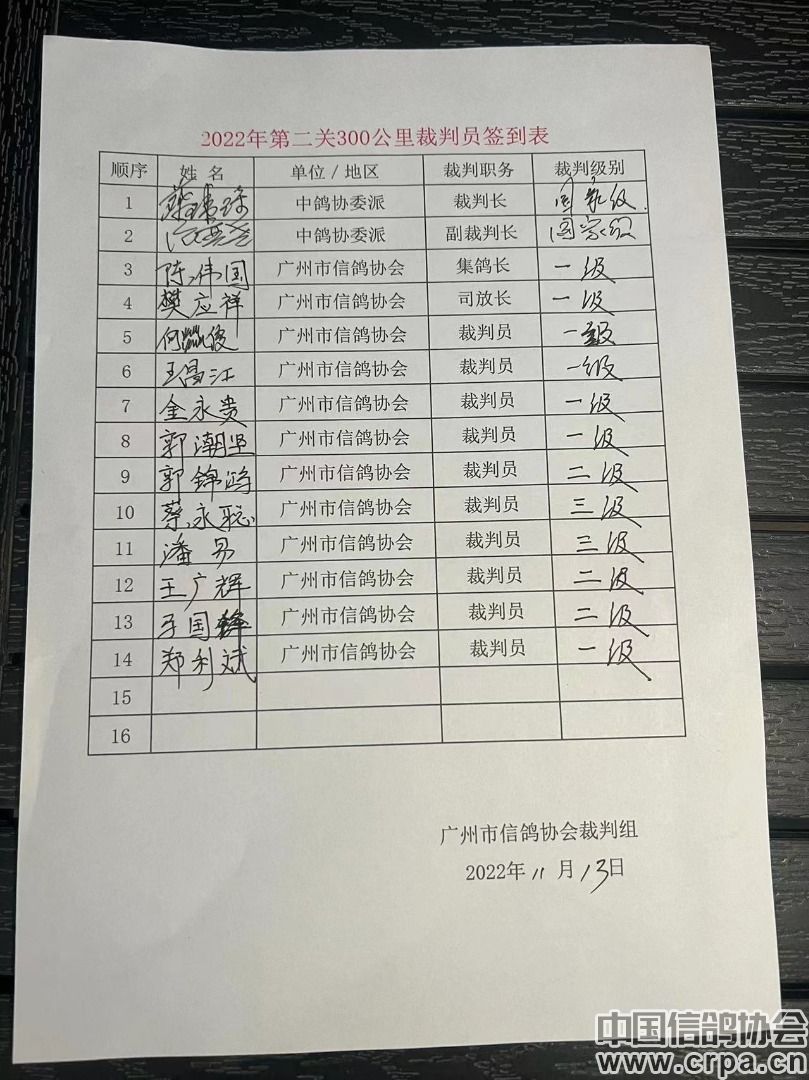 2022年第二关300公里裁判员签到表
顺序 姓名 单位/地区 裁判职务 裁判级别
1 中鸽协委派 裁判长 国家级
2 中鸽协委派 副裁判长 国家级
3 陈伟国 广州市信鸽协会 集鸽长 一级
4 樊应祥 广州市信鸽协会 司放长 一级
5 何 俊 广州市信鸽协会 裁判员 一级
6 王昌江 广州市信鸽协会 裁判员 一级
7 金永贵 广州市信鸽协会 裁判员 一级
8 郭潮坚 广州市信鸽协会 裁判员 一级
9 郭锦鸿 广州市信鸽协会 裁判员 二级
10 蔡永聪 广州市信鸽协会 裁判员 三级
11 潘易 广州市信鸽协会 裁判员 三级
12 王广辉 广州市信鸽协会 裁判员 二级
13 国 广州市信鸽协会 裁判员 二级
14 郑利斌 广州市信鸽协会 裁判员 一级
15
16
广州市信鸽协会裁判组
2022年11月13日
中国信鸽协会
www.crpa.cn